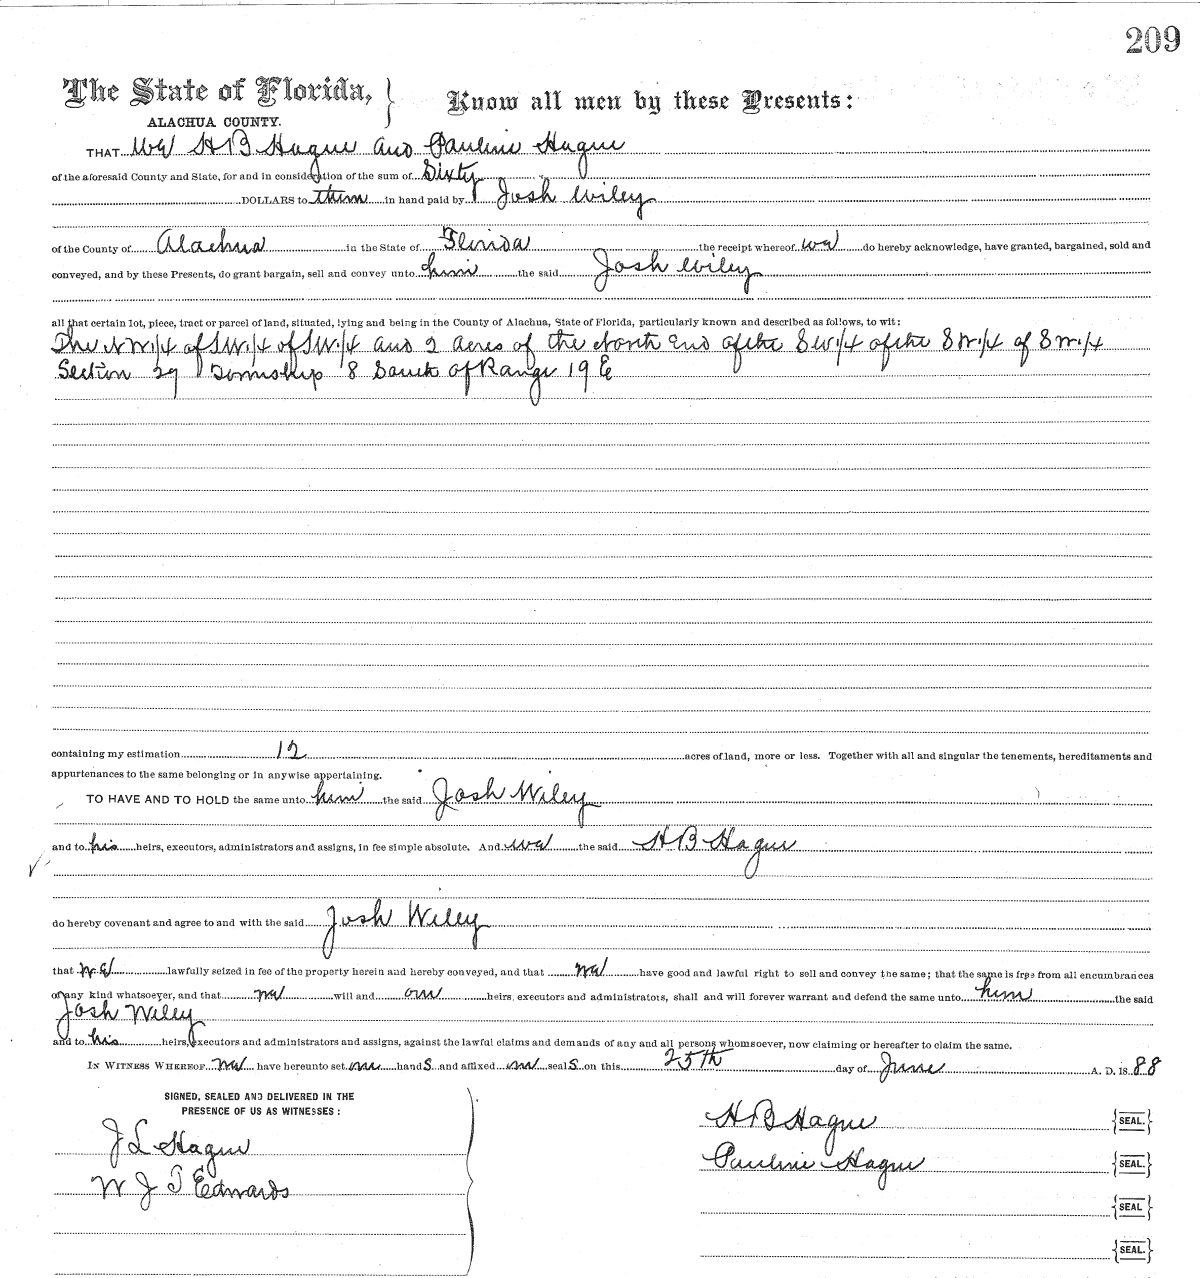 209
The State of Florida, Know all men by these Presents:
ALACHUA COUNTY.
THAT We H B Hague and Pauline Hague
of the aforesaid County and State, for and in consideration of the sum of Sixty
DOLLARS to them in hand paid by Josh Wiley
of the County of Alachua in the State of Florida the receipt whereof we do hereby acknowledge, have granted, bargained, sold and
conveyed, and by these Presents, do grant bargain, sell and convey unto him the said Josh Wiley
all that certain lot, piece, tract or parcel of land, situated, lying and being in the County of Alachua, State of Florida, particularly known and described as follows, to wit:
The N W 1/4 of S W 1/4 of S W 1/4 and 2 acres of the North End of the S W 1/4 of the S W 1/4 of S W 1/4
Section 29 Township 8 South of Range 19 E
containing my estimation 12 acres of land, more or less. Together with all and singular the tenements, hereditaments and
appurtenances to the same belonging or in anywise appertaining.
TO HAVE AND TO HOLD the same unto him the said Josh Wiley
and to his heirs, executors, administrators and assigns, in fee simple absolute. And we the said H B Hague
do hereby covenant and agree to and with the said Josh Wiley
that we lawfully seized in fee of the property herein and hereby conveyed, and that we have good and lawful right to sell and convey the same; that the same is free from all encumbrances
of any kind whatsoever, and that we will and our heirs, executors and administrators, shall and will forever warrant and defend the same unto him the said
Josh Wiley
and to his heirs, executors and administrators and assigns, against the lawful claims and demands of any and all persons whomsoever, now claiming or hereafter to claim the same.
IN WITNESS WHEREOF we have hereunto set our hands and affixed our seals on this 25th day of June A. D. 1888
SIGNED, SEALED AND DELIVERED IN THE
PRESENCE OF US AS WITNESSES:
J L Hague
W J T Edwards
H B Hague {SEAL.}
Pauline Hague {SEAL.}
{SEAL}
{SEAL.}